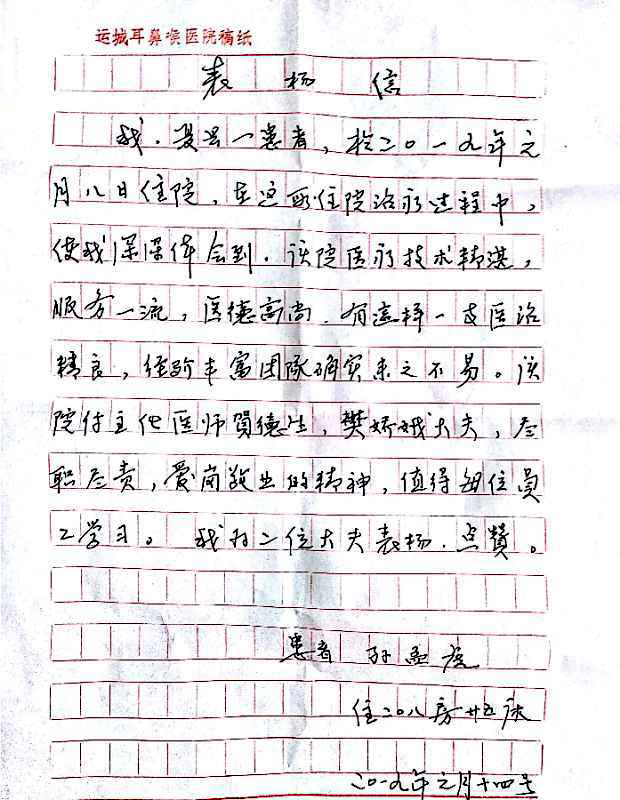 运城耳鼻喉医院稿纸
表扬信
我,是一患者,於二〇一九年元
月八日住院,在这所住院治疗过程中,
使我深深体会到.该院医疗技术精湛,
服务一流,医德高尚.有这样一支医治
精良,经验丰富团队确实来之不易。该
院付主任医师贺德生,樊娇娥大夫,尽
职尽责,爱岗敬业的精神,值得每位员
工学习。我为二位大夫表扬.点赞。
患者 孙
住二〇八房廿五床
二〇一九年元月十四号